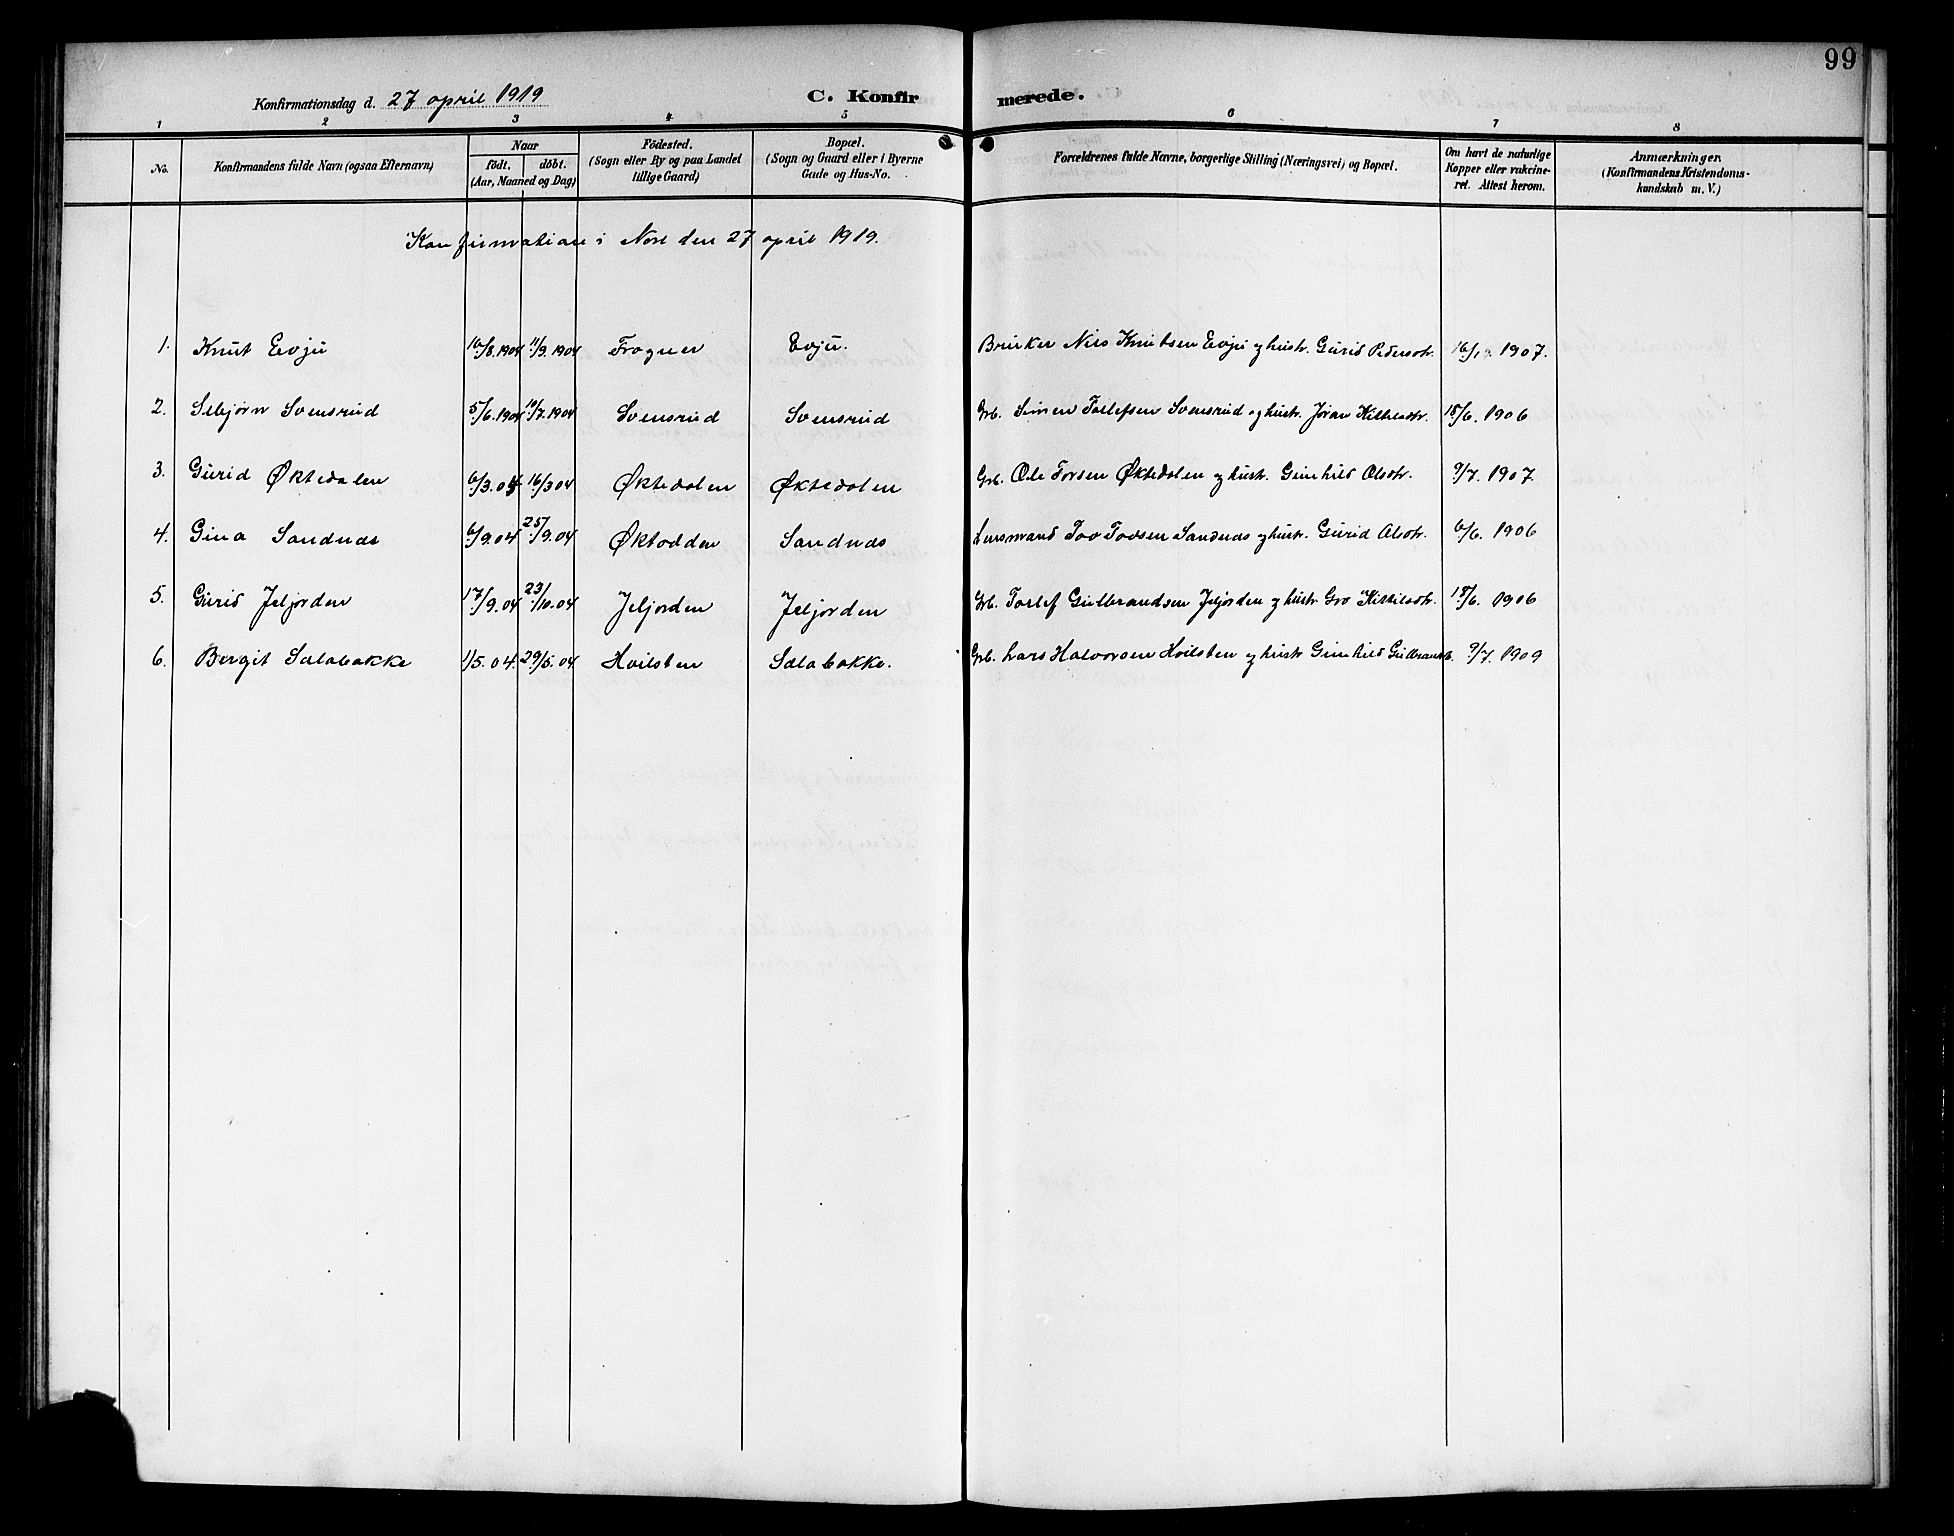 99
Konfirmationsdag d. 27 april 1919 C. Konfir merede.
1 2 3 4 5 6 7 8
No. Konfirmandens fulde Navn (ogsaa Efternavn) Naar födt. döbt. (Aar, Maaned og Dag) Födested. (Sogn eller By og paa Landet tillige Gaard) Bopæl. (Sogn og Gaard eller i Byerne Gade og Hus-No. Forældrenes fulde Navne, borgerlige Stilling (Næringsvei) og Bopæl. Om havt de naturlige Kopper eller vakcineret. Attest herom. Anmærkninger. (Konfirmandens Kristendomskundskab m. V.)
Konfirmation i Nore den 27 april 1919.
1. Knut Evju 10/8.1904 11/9.1904 Frogner Evju. Bruker Nils Knutsen Evju og hustr. Gurid Pedersdtr. 1907.
2. Sebjørn Svensrud 5/6.1904 10/7.1904 Svensrud Svensrud Grb. Simen Tollefsen Svensrud og hustr. Jøran Kittilsdtr. 18/6. 1906
3. Gurid Øktedalen 6/3.04 16/3 04 Øktedalen Øktedalen Grb. Ole Torsen Øktedalen og hustr. Gunhild Olsdtr. 9/7. 1907
4. Gina Sandnæs 6/9.04 25/9.04 Øktodden Sandnæs Lensmand Tov Tovsen Sandnæs og hustr. Gurid Olsdtr. 6/6. 1906
5. Gurid Jeljorden 17/9.04 23/10.04 Jeljorden Jeljorden Grb. Tollef Gulbrandsen Jeljorden og hustr. Gro Kittilsdtr. 18/6. 1906
6. Bergit Sælabakke 1/5.04. 29/5.04 Hvilsten Sælabakke. Grb. Lars Halvorsen Hvilsten og hustr. Gunhild 9/7. 1909